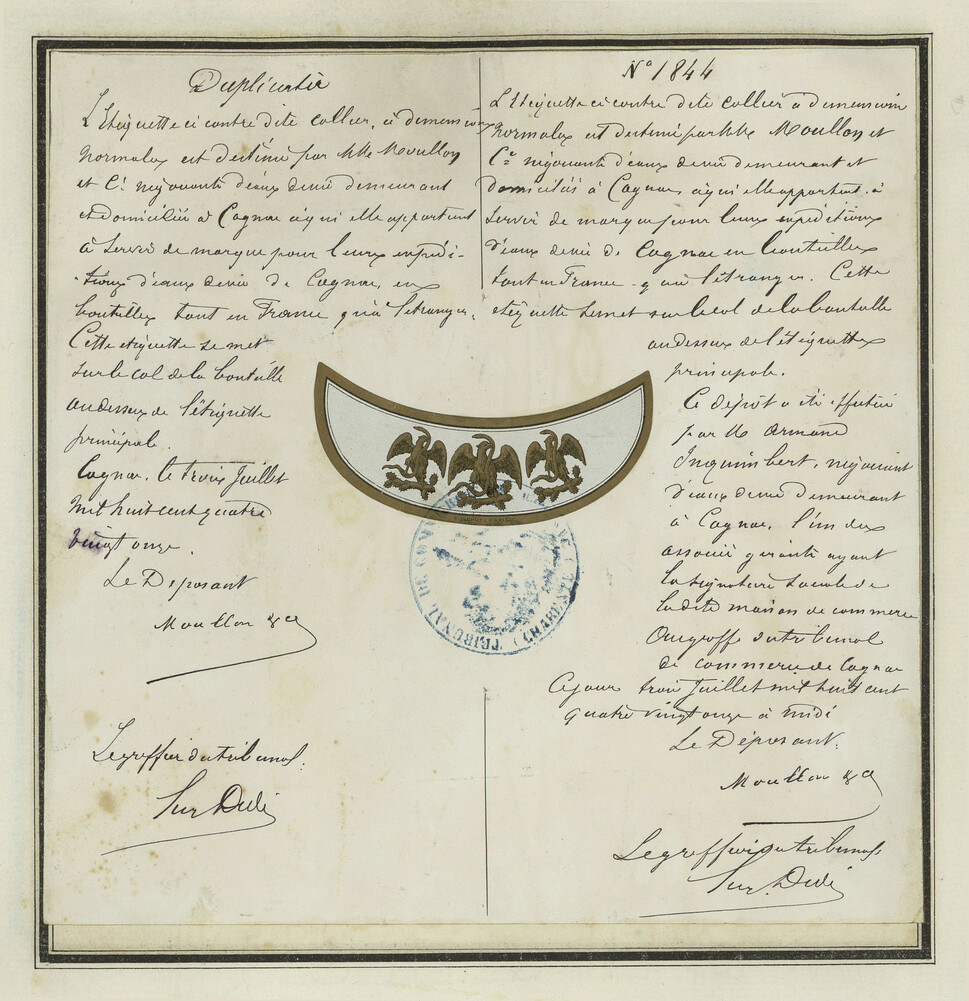 Duplicata
L'Etiquette ci contre dite collier, à dimensions
normales est destiné par MM Moullon
et Cie négociants d'eaux devie demeurant
et domiciliés à Cognac à qui elle appartient
à servir de marque pour leurs expédi-
tions d'eaux devie de Cognac, en
bouteilles tant en France qu'à l'étranger,
Cette etiquette se met
sur le col de la bouteille
au dessus de l'étiquette
principale.
Cognac, le trois Juillet
mil huit cent quatre
vingt onze.
Le Déposant
Moullon & Cie
Le greffier du tribunal.
N° 1844
L'Etiquette ci contre dite collier à dimensions
normales est destiné par MM Moullon et
Cie négociants d'eaux devie demeurant et
domiciliés à Cognac à qui elle appartient à
servir de marque pour leurs expéditions
d'eaux devie de Cognac en bouteilles
tant en France qu'à l'étranger. Cette
etiquette se met sur le col de la bouteille
au dessus de l'étiquette
principale.
Ce dépôt a été effectué
par M Armand
Inquimbert, négociant
d'eaux devie demeurant
à Cognac, l'un des
associés gérants ayant
la signature sociale de
la dite maison de commerce
Au greffe du tribunal
de commerce de Cognac
Ce jour trois Juillet mil huit cent
quatre vingt onze à midi
Le Déposant.
Moullon & Cie
Le greffier du tribunal.
TRIBUNAL DE COMMERCE
(CHARENTE)